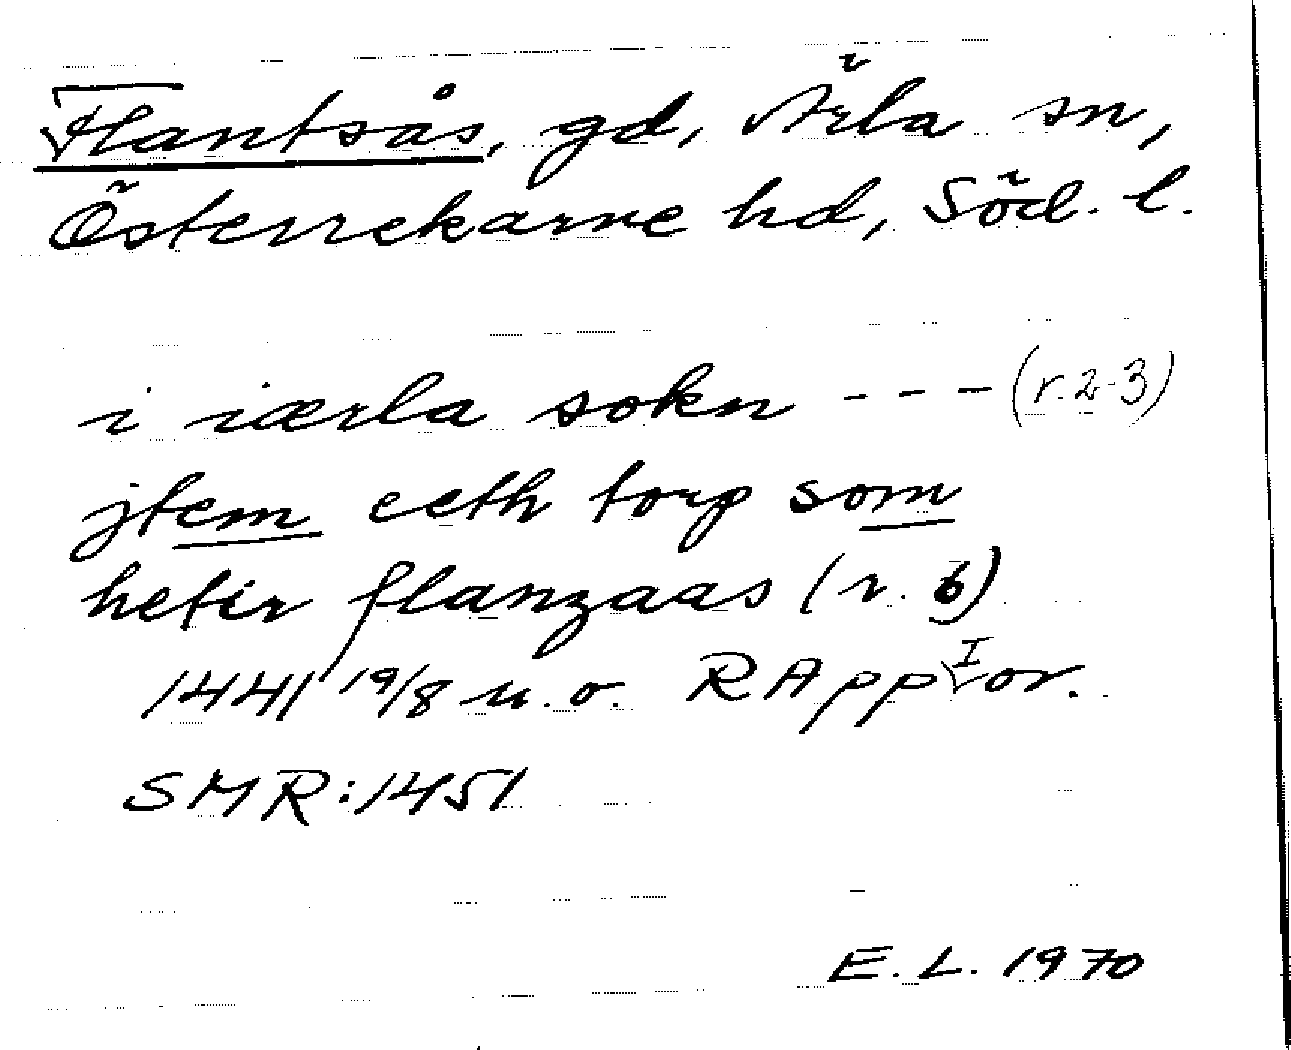 Flantsås, gd, Ärla sn,
Österrekarne hd, Söd. l.
i iærla sokn --- (r. 2-3)
jtem eeth torp som
hetir flanzaas (r. 6)
1441 19/8 u.o. RApp I or.
SMR: 1451
E. L. 1970